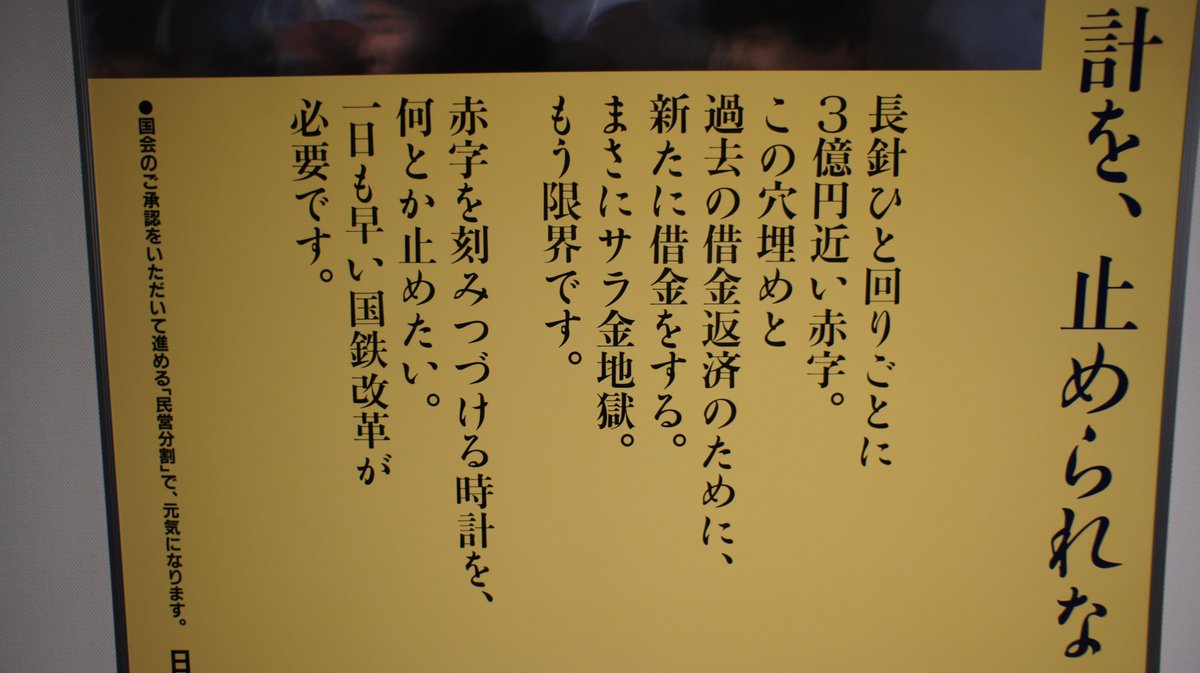 計を、止められな
長針ひと回りごとに
3億円近い赤字。
この穴埋めと
過去の借金返済のために、
新たに借金をする。
まさにサラ金地獄。
もう限界です。
赤字を刻みつづける時計を、
何とか止めたい。
一日も早い国鉄改革が
必要です。
●国会のご承認をいただいて進める「民営分割」で、元気になります。
日